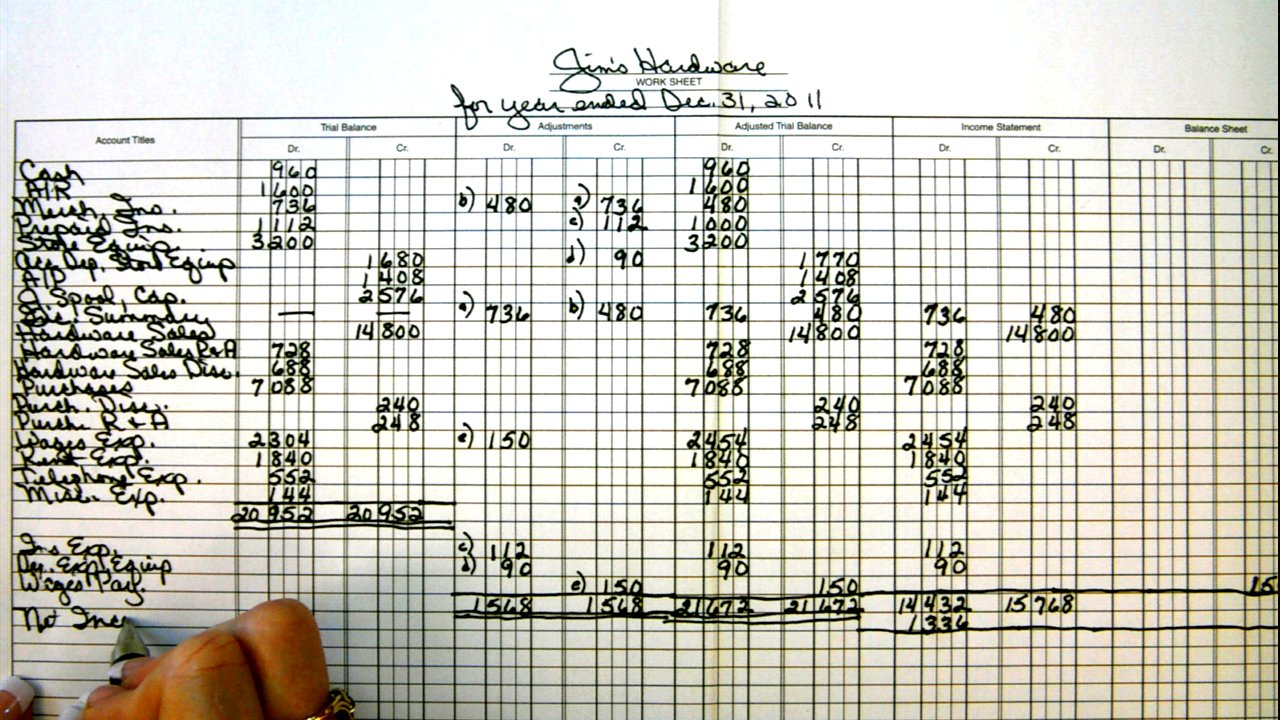 Jim's Hardware
WORK SHEET
for year ended Dec. 31, 2011
Account Titles Trial Balance Adjustments Adjusted Trial Balance Income Statement Balance Sheet
Dr. Cr. Dr. Cr. Dr. Cr. Dr. Cr. Dr. Cr.
Cash 960 960
A/R 1600 1600
Merch. Inv. 736 b) 480 a) 736 480
Prepaid Ins. 1112 c) 112 1000
Store Equip. 3200 3200
Acc. Dep. Store Equip 1680 d) 90 1770
A/P 1408 1408
J. Spool, Cap. 2576 2576
Inc. Summary — — a) 736 b) 480 736 480 736 480
Hardware Sales 14800 14800 14800
Hardware Sales R+A 728 728 728
Hardware Sales Disc. 688 688 688
Purchases 7088 7088 7088
Purch. Disc. 240 240 240
Purch. R + A 248 248 248
Wages Exp. 2304 e) 150 2454 2454
Rent Exp. 1840 1840 1840
Telephone Exp. 552 552 552
Misc. Exp. 144 144 144
20952 20952
Ins Exp. c) 112 112 112
Dep. Exp. Equip d) 90 90 90
Wages Pay. e) 150 150 15
1568 1568 21672 21672 14432 15768
Net Inco 1336